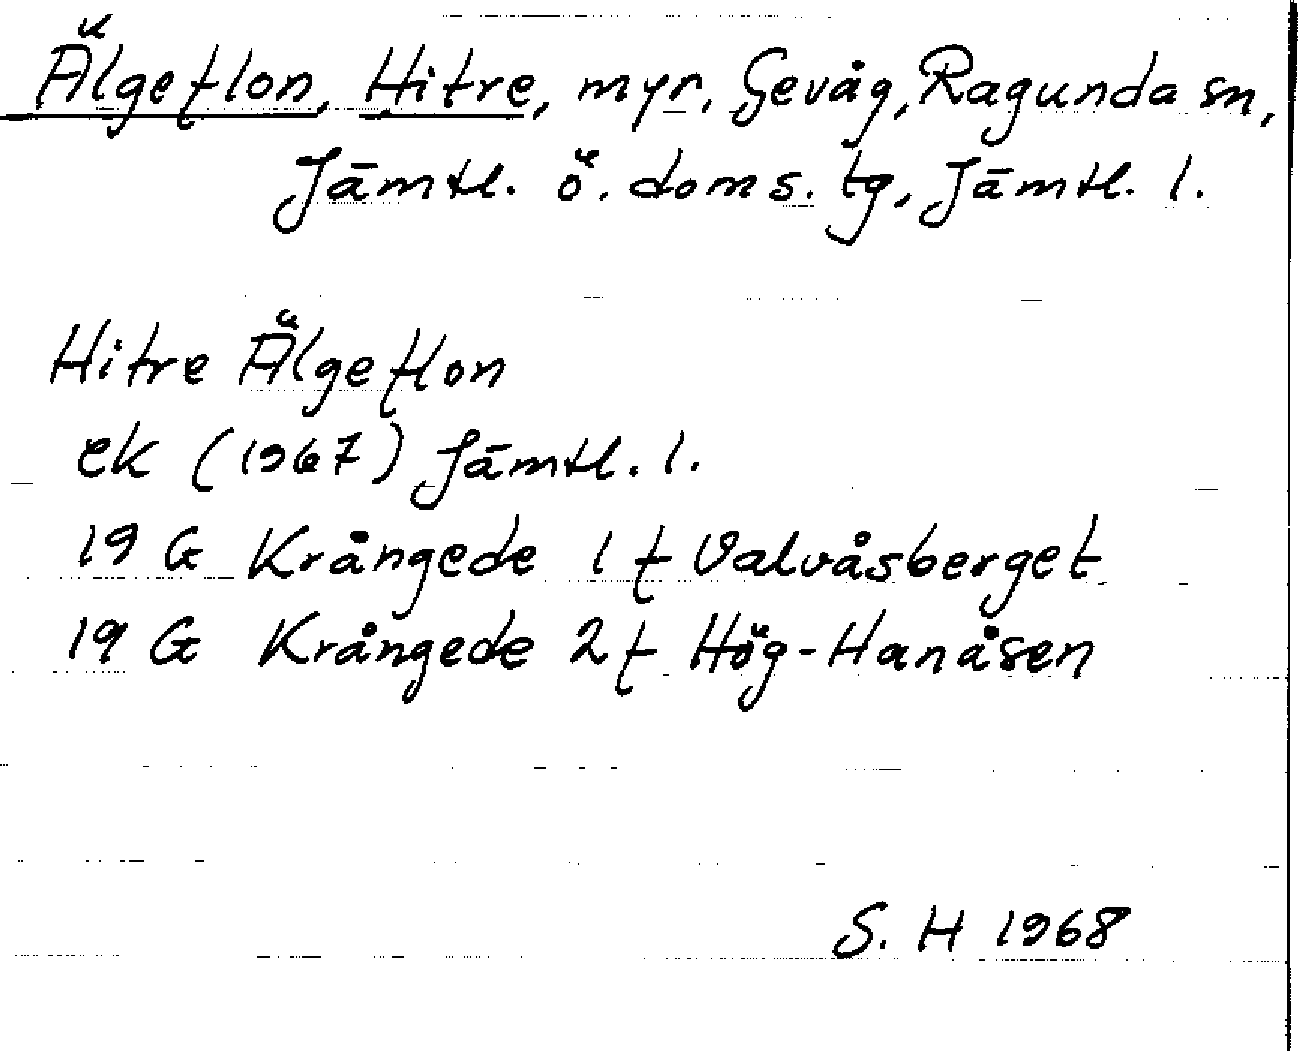 Älgeflon, Hitre, myr. Gevåg, Ragunda sn,
Jämtl. ö. doms. tg, Jämtl. l.
Hitre Älgeflon
ek (1967) Jämtl. l.
19 G Krångede 1 f Valvåsberget
19 G Krångede 2 f Hög-Hanåsen
S. H 1968